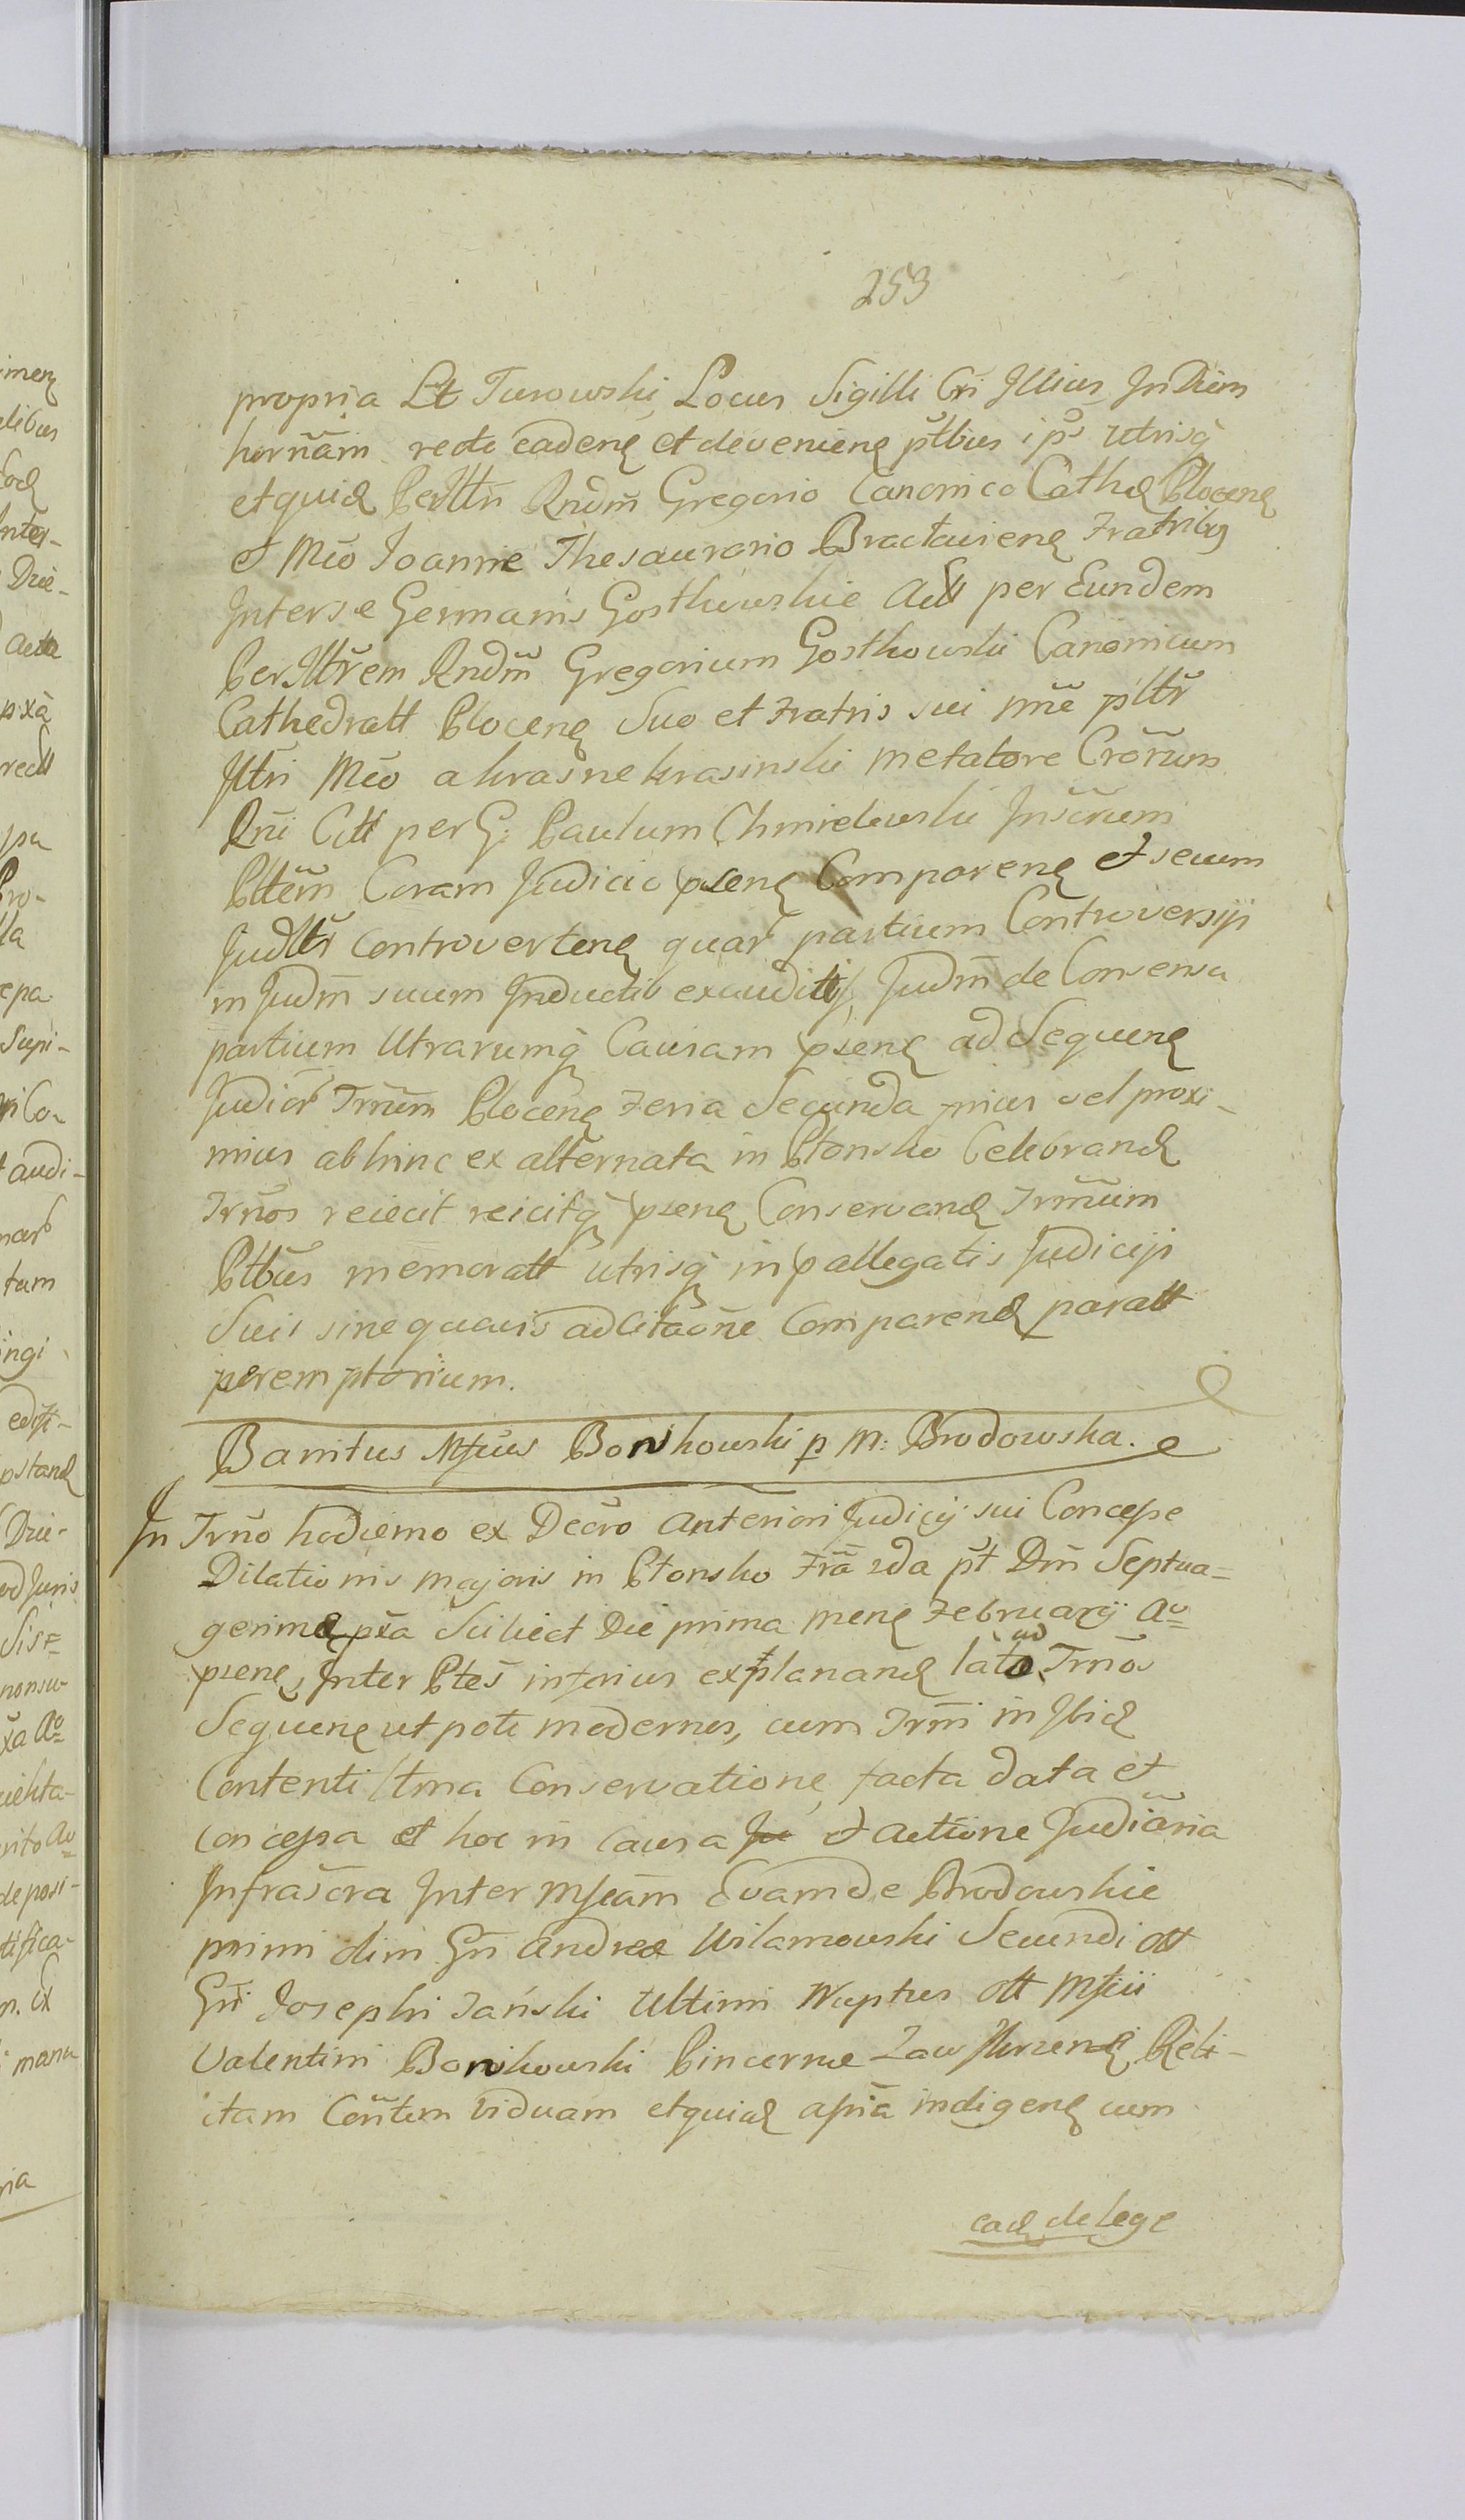 253
propria Lt Turowski, Locus Sigilli Cri Illius, In Diem
hornam recte cadenę et devenienę ptbus ips utrisq̃
et quid Perlltri Rndm̃ Gregorio Canonico Cathed Plocenę
et Mco Joanne Thesaurario Bractavienę Fratribus
Inter se Germanis Gostkowskie Actt per Eundem
Perilltrem Rndm̃ Gregorium Gostkowski Canonicum
Cathedratt Plocenę Suo et Fratris sui nñe plltr
Illtri Mco a Krasne Krasinski metatore Crorum
Rni Citt per G: Paulum Chmielewski Inscrum
Pttem Coram Judicio psenę Comparenę et secum
Judltr controvertenę quar partium Controversiji
in Judm̃ suum Inductis exauditis, Judm̃ de Consensu
partium Utrarumq̃ Causam psenę ad Sequenę
Judior Trnum Plocenę Feria Secunda prius vel proxi-
mius abhinc ex alternata in Plonsko Celebrand
Trnos reiecit reicitq̃ psenę Conservand Trnum
Ptbus memoratt utrisq̃ in pallegatis Judiciji
Suis sine quavis adcitaone Comparend paratt
peremptorium.
Banitus Mfcus Bonkowski p M: Brodowska.
In Trno hodierno ex Decro anteriori Judicij sui Concepe
Dilationis majoris in Plonsko Fra 2da pt Dm̃ Septua=
gesimę pxa Scilicet Die prima menę Februarij Ao
psenę, Inter Ptes inferius explanand lato ad Trnos
Sequenę utpote modernos, cum Trni in Ibid
Contenti ltma Conservatione, facta data et
concepsa et hoc in causa Ju et actione Judiaria
Infrascra Inter Mfcam Evam de Brodowskie
primi olim Gn Andreæ Wilamowski Secundi ott
Gni Josephi Jański Ultimi Nuptus ott Mfci
Valentini Bonkowski Pincernæ Zawskrzenę Reli-
ctam Contem viduam et quid apia indigenę cum
cad de lege
imenę
elibus
Inter-
Drie-
acta
pxa
pa
Pro-
lla
epa
Supi-
audi-
tam
ingi
edisti-
pstand
Drie-
Sis=
nonsu-
xa Ao
depposi-
tifica-
manu
ria